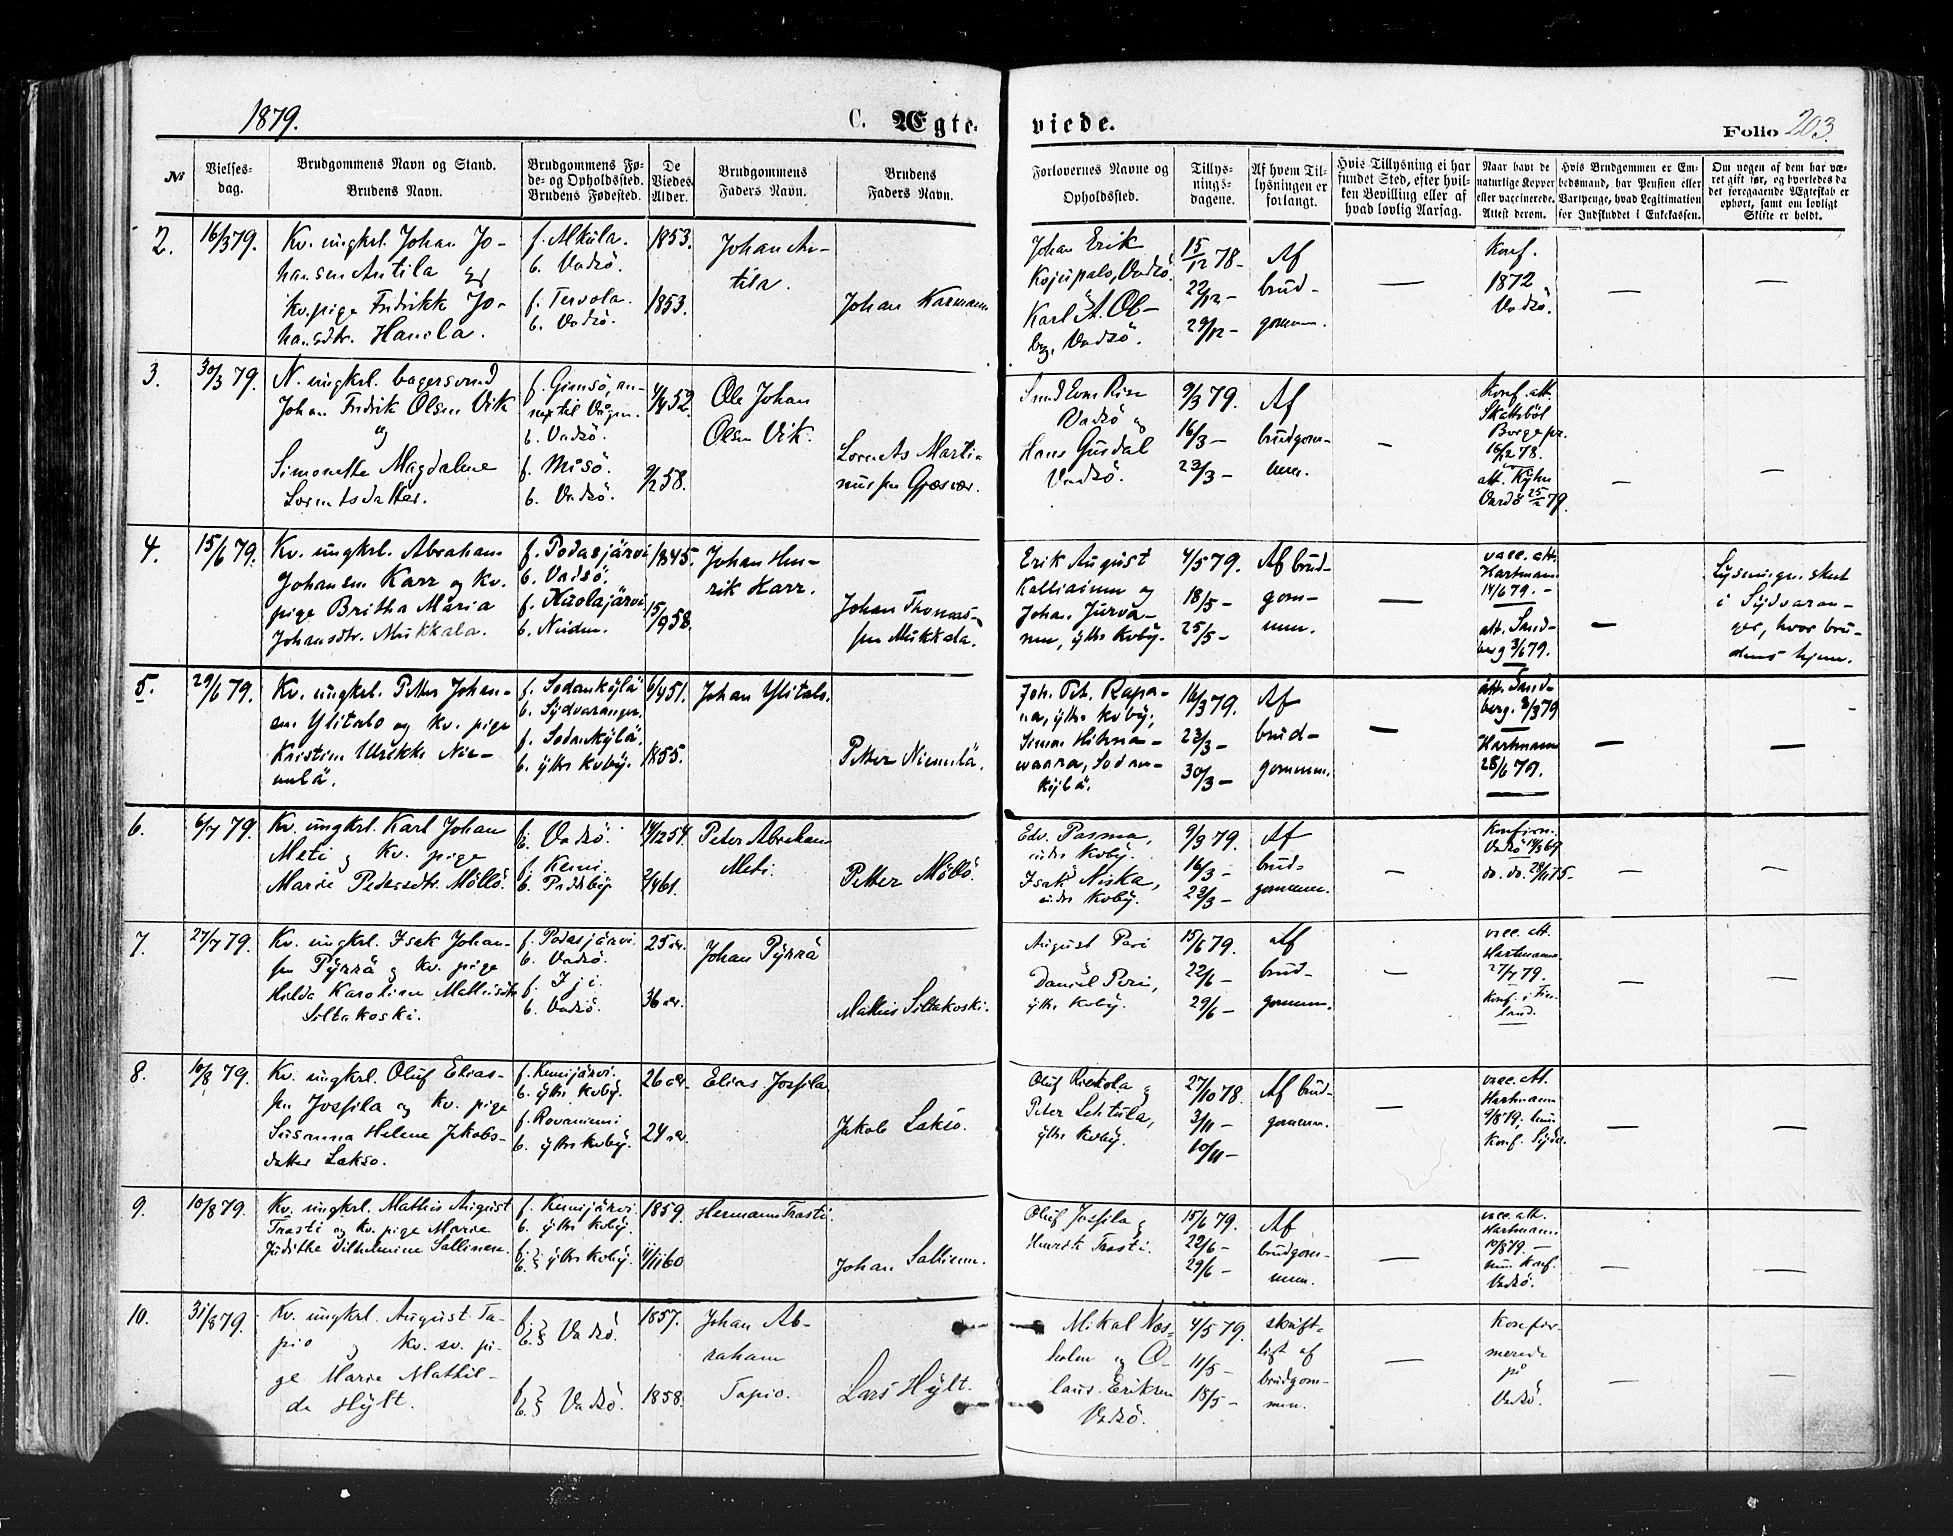 1879.
C. Ægte-
viede.
Folio 203
No
Vielses-
dag.
Brudgommens Navn og Stand.
Brudens Navn.
Brudgommens Fø-
de- og Opholdssted.
Brudens Fødested.
De
Viedes
Alder.
Brudgommens
Faders Navn.
Brudens
Faders Navn.
Forlovernes Navne og
Opholdssted.
Tillys-
nings-
dagene.
Af hvem Til-
lysningen er
forlangt.
Hvis Tillysning ei har
fundet Sted, efter hvil-
ken Bevilling eller af
hvad lovlig Aarsag.
Naar havt de
naturlige Kopper
eller vaccinerede.
Attest derom.
Hvis Brudgommen er Em-
bedsmand, har Pension eller
Vartpenge, hvad Legitimation
for Indskuddet i Enkekassen.
Om nogen af dem har væ-
ret gift før, og hvorledes da
det foregaaende Ægteskab er
ophørt, samt om lovligt
Skifte er holdt.
2.
16/3 79.
Kv. ungkrl. Johan Jo-
hansen Antila og
Kv. pige Fredrikke Jo-
hansdtr. Hanela.
f. Alkula.
b. Vadsö.
f. Tervola.
b. Vadsö.
1853.
1853.
Johan An-
tila.
Johan Karmann
Johan Erik
Kojupalo, Vadsö.
Karl A. Ol-
Vadsö.
15/12 78 -
22/12 -
29/12 -
Af
brud-
gommen.
—
Konf.
1872
Vadsö.
—
—
3.
30/3 79.
N. ungkrl. bagersvend
Johan Fredrik Olsen Vik
og
Simonette Magdalene
Lorentsdatter.
f. Gimsö, an-
nex til Vågan.
b. Vadsö.
f. Måsö.
b. Vadsö.
4/4 52.
9/2 58.
Ole Johan
Olsen Vik.
Lorents Marti-
nussen Gjæsvær.
Vadsö og
Hans Gusdal
Vadsö.
9/3 79.
16/3 -
23/3 -
Af
brudgom-
men.
—
Konf. att.
Borge pr.
16/12 78.
att. Kyhn
Vardö 25/2 79.
—
—
4.
15/6 79.
Kv. ungkrl. Abraham
Johansen Karr og kv.
pige Britha Maria
Johansdtr. Mukkala.
f. Pudasjärvi
b. Vadsö.
f. Kuolajärvi
b. Neiden.
1845.
15/9 58.
Johan Hen-
rik Karr.
Johan Thomas-
sen Mukkala.
Erik August
Kalliainen og
Johan Jurva-
nen, ytre Kvby.
4/5 79.
18/5 -
25/5 -
Af brud-
gom-
men.
—
vacc. att.
Hartmann
14/6 79. -
att. Sand-
berg 3/6 79.
—
Lysningen skeet
i Sydvaran-
ger, hvor bru-
dens hjem.
5.
29/6 79.
Kv. ungkrl. Petter Johan-
sen Ylitalo og kv. pige
Kristine Ulrikke Nie-
melä.
f. Sodankylä
b. Sydvaranger.
f. Sodankylä.
b. ytre Kvby.
6/4 51.
1855.
Johan Ylitalo.
Petter Niemelä.
Joh. Pet. Rapa-
na, ytre Kvby,
Simon Hietna-
waara, Sodan-
kylä.
16/3 79.
23/3 -
30/3 -
Af
brud-
gommen.
—
att. Sand-
berg. 8/3 79
Hartmann
28/6 79.
—
—
6.
6/7 79.
Kv. ungkrl. Karl Johan
Meti og Kv. pige
Marie Pedersdtr. Möllö.
f. b. Vadsö.
f. Kemi.
14/12 54.
2/4 61.
Peter Abraham
Meti.
Petter Möllö.
Edv. Pasma,
indre Kvby.
Isak Niska,
indre Kvby.
9/3 79.
16/3 -
23/3 -
Af
brud-
gommen.
—
Konfirm.
do. do.
—
—
7.
27/7 79.
Kv. ungkrl. Isak Johan-
sen Pyrrö og kv. pige
Hilda Karoline Mathisdtr
Siltakoski.
f. Pudasjärvi.
b. Vadsö.
f. Iji.
b. Vadsö.
25 år.
36 år.
Johan Pyrrö
Mathis Siltakoski.
August Peri
Daniel Peri,
ytre Kvby.
15/6 79.
22/6 -
29/6 -
Af
brud-
gommen.
—
vacc. att.
Hartmann
27/7 79.
Konf. i Fin-
land.
—
—
8.
10/8 79.
Kv. ungkrl. Oluf Elias-
sen Josfila og kv. pige
Susanna Helene Jakobs-
datter Lakso.
f. Kemijärvi.
b. ytre Kvby.
f. Rovaniemi
b. ytre Kvby.
26 år.
24 år.
Elias Josfila
Jakob Lakso.
Oluf Riekola og
Peter Lehtula,
ytre Kvby.
27/10 78.
3/11 -
10/11 -
Af brud-
gommen.
—
vacc. att.
Hartmann
9/8 79.
Konf.
—
—
9.
10/8 79.
Kv. ungkrl. Mathis August
Trasti og kv. pige Marie
Judithe Vilhelmine Sallinen.
f. Kemijärvi
b. ytre Kvby.
f. b. ytre Kvby.
1859.
11/11 60
Hermann Trasti.
Johan Sallinen.
Oluf Josfila og
Henrik Trasti.
15/6 79.
22/6 -
29/6 -
Af
brudgom-
men.
—
vacc. att.
Hartmann
10/8 79. -
Konf.
Vadsö.
—
—
10.
31/8 79.
Kv. ungkrl. August Ta-
pio og kv. sv. pi-
ge Marie Mathil-
de Hylt.
f. b. Vadsö.
f. b. Vadsö.
1857.
1858.
Johan Ab-
raham
Tapio.
Lars Hylt.
Mikal Næs-
holm og O-
laus Eriksen
Vadsö.
4/5 79.
11/5 -
18/5 -
skrift-
ligt af
brudgom-
men.
—
Konfir-
merede
på
Vadsö.
—
—